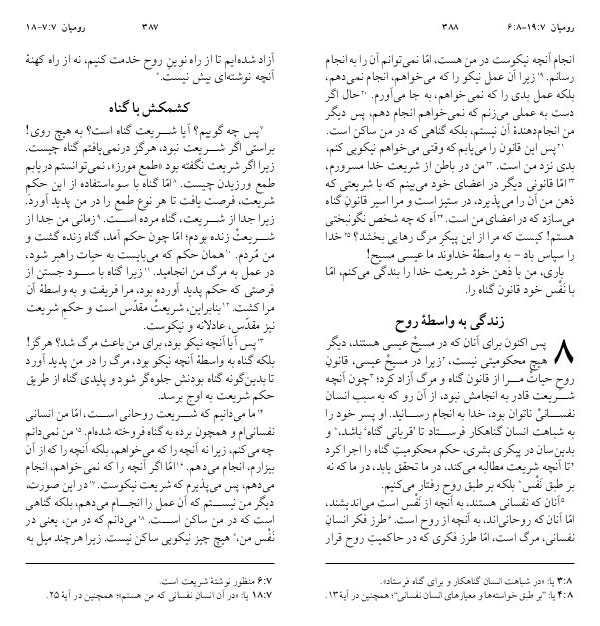 رومیان ۷:۷-۱۸
۳۸۷
آزاد شده‌ایم تا از راه نوینِ روح خدمت کنیم، نه از راه کهنۀ
آنچه نوشته‌ای بیش نیست.*
کشمکش با گناه
۷پس چه گوییم؟ آیا شریعت گناه است؟ به هیچ روی!
براستی اگر شریعت نبود، هرگز درنمی‌یافتم گناه چیست.
زیرا اگر شریعت نگفته بود «طمع مورز»، نمی‌توانستم دریابم
طمع ورزیدن چیست. ۸امّا گناه با سوءاستفاده از این حکمِ
شریعت، فرصت یافت تا هر نوع طمع را در من پدید آورَد.
زیرا جدا از شریعت، گناه مرده است. ۹زمانی من جدا از
شریعتْ زنده بودم؛ امّا چون حکم آمد، گناه زنده گشت و
من مُردم. ۱۰همان حکم که می‌بایست به حیات راهبر شود،
در عمل به مرگِ من انجامید. ۱۱زیرا گناه با سود جستن از
فرصتی که حکم پدید آورده بود، مرا فریفت و به واسطۀ آن
مرا کشت. ۱۲بنابراین، شریعتْ مقدّس است و حکمِ شریعت
نیز مقدّس، عادلانه و نیکوست.
۱۳پس آیا آنچه نیکو بود، برای من باعث مرگ شد؟ هرگز!
بلکه گناه به واسطۀ آنچه نیکو بود، مرگ را در من پدید آورد
تا بدین‌گونه گناه بودنش جلوه‌گر شود و پلیدی گناه از طریق
حکم شریعت به اوج برسد.
۱۴ما می‌دانیم که شریعت روحانی است، امّا من انسانی
نفسانی‌ام و همچون برده به گناه فروخته شده‌ام. ۱۵من نمی‌دانم
چه می‌کنم، زیرا نه آنچه را که می‌خواهم، بلکه آنچه را که از آن
بیزارم، انجام می‌دهم. ۱۶امّا اگر آنچه را که نمی‌خواهم، انجام
می‌دهم، پس می‌پذیرم که شریعت نیکوست. ۱۷در این صورت،
دیگر من نیستم که آن عمل را انجام می‌دهم، بلکه گناهی
است که در من ساکن است. ۱۸می‌دانم که در من، یعنی در
نَفْس من،* هیچ چیز نیکویی ساکن نیست. زیرا هرچند میل به
۶:۷ منظور نوشتۀ شریعت است.
۱۸:۷ یا: «در آن انسان نفسانی که من هستم»؛ همچنین در آیۀ ۲۵.
۳۸۸
رومیان ۱۹:۷-۶:۸
انجام آنچه نیکوست در من هست، امّا نمی‌توانم آن را به انجام
رسانم. ۱۹زیرا آن عمل نیکو را که می‌خواهم، انجام نمی‌دهم،
بلکه عمل بدی را که نمی‌خواهم، به جا می‌آورم. ۲۰حال اگر
دست به عملی می‌زنم که نمی‌خواهم انجام دهم، پس دیگر
من انجام‌دهندۀ آن نیستم، بلکه گناهی که در من ساکن است.
۲۱پس این قانون را می‌یابم که وقتی می‌خواهم نیکویی کنم،
بدی نزد من است. ۲۲من در باطن از شریعت خدا مسرورم،
۲۳امّا قانونی دیگر در اعضای خود می‌بینم که با شریعتی که
ذهن من آن را می‌پذیرد، در ستیز است و مرا اسیر قانونِ گناه
می‌سازد که در اعضای من است. ۲۴آه که چه شخص نگونبختی
هستم! کیست که مرا از این پیکرِ مرگ رهایی بخشد؟ ۲۵خدا
را سپاس باد - به واسطۀ خداوند ما عیسی مسیح!
باری، من با ذهن خود شریعت خدا را بندگی می‌کنم، امّا
با نَفْس خود قانون گناه را.
زندگی به واسطۀ روح
۸ پس اکنون برای آنان که در مسیحْ عیسی هستند، دیگر
هیچ محکومیتی نیست،* ۲زیرا در مسیحْ عیسی، قانونِ
روحِ حیاتْ مرا از قانون گناه و مرگ آزاد کرد؛ ۳چون آنچه
شریعت قادر به انجامش نبود، از آن رو که به سبب انسان
نفسانیْ ناتوان بود، خدا به انجام رسانید. او پسر خود را
به شباهت انسان گناهکار فرستاد تا ’قربانی گناه‘ باشد،* و
بدین‌سان در پیکری بشری، حکم محکومیتِ گناه را اجرا کرد
۴تا آنچه شریعت مطالبه می‌کند، در ما تحقق یابد، در ما که نه
بر طبق نَفْس* بلکه بر طبق روح رفتار می‌کنیم.
۵آنان که نفسانی هستند، به آنچه از نَفْس است می‌اندیشند،
امّا آنان که روحانی‌اند، به آنچه از روح است. ۶طرز فکرِ انسانِ
نفسانی، مرگ است، امّا طرز فکری که در حاکمیتِ روح قرار
۳:۸ یا: «در شباهت انسان گناهکار و برای گناه فرستاد».
۴:۸ یا: "بر طبق خواسته‌ها و معیارهای انسان نفسانی"؛ همچنین در آیۀ ۱۳.